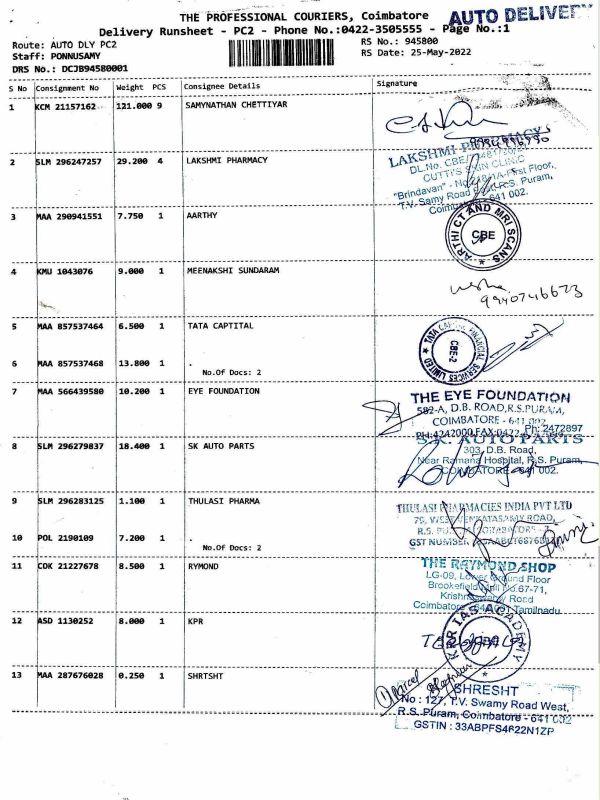 THE PROFESSIONAL COURIERS, Coimbatore
AUTO DELIVERY
Delivery Runsheet - PC2 - Phone No.:0422-3505555 - Page No.:1
Route: AUTO DLY PC2
RS No.: 945800
Staff: PONNUSAMY
RS Date: 25-May-2022
DRS No.: DCJB94580001
S No Consignment No Weight PCS Consignee Details Signature
1 KCM 21157162 121.000 9 SAMYNATHAN CHETTIYAR
2 SLM 296247257 29.200 4 LAKSHMI PHARMACY
LAKSHMI PHARMACY
CUTTI'S SKIN CLINIC
"Brindavan" First Floor,
T.V. Samy Road R.S. Puram,
641 002.
3 MAA 290941551 7.750 1 AARTHY
ARTHI CT AND MRI SCANS
CBE
4 KMU 1043076 9.000 1 MEENAKSHI SUNDARAM
9940746673
5 MAA 857537464 6.500 1 TATA CAPTITAL
TATA CAPITAL FINANCIAL SERVICES LIMITED
CBE-2
6 MAA 857537468 13.800 1 .
No.Of Docs: 2
7 MAA 566439580 10.200 1 EYE FOUNDATION
THE EYE FOUNDATION
582-A, D.B. ROAD, R.S.PURAM,
COIMBATORE - 641 002
Ph: 2472897
8 SLM 296279837 18.400 1 SK AUTO PARTS
S.K. AUTO PARTS
303, D.B. Road,
Near Ramana Hospital, R.S. Puram,
COIMBATORE - 641 002.
9 SLM 296283125 1.100 1 THULASI PHARMA
THULASI PHARMACIES INDIA PVT LTD
10 POL 2190109 7.200 1 .
No.Of Docs: 2
GST NUMBER
11 CDK 21227678 8.500 1 RYMOND
THE RAYMOND SHOP
LG-09, Lower Ground Floor
Brookefield Mall No.67-71,
Krishnaswamy Road
Coimbatore - 641001 Tamilnadu
12 ASD 1130252 8.000 1 KPR
KPR IAS ACADEMY
13 MAA 287676028 0.250 1 SHRTSHT
SHRESHT
No : 127, T.V. Swamy Road West,
R.S. Puram, Coimbatore - 641 002
GSTIN : 33ABPFS4622N1ZP